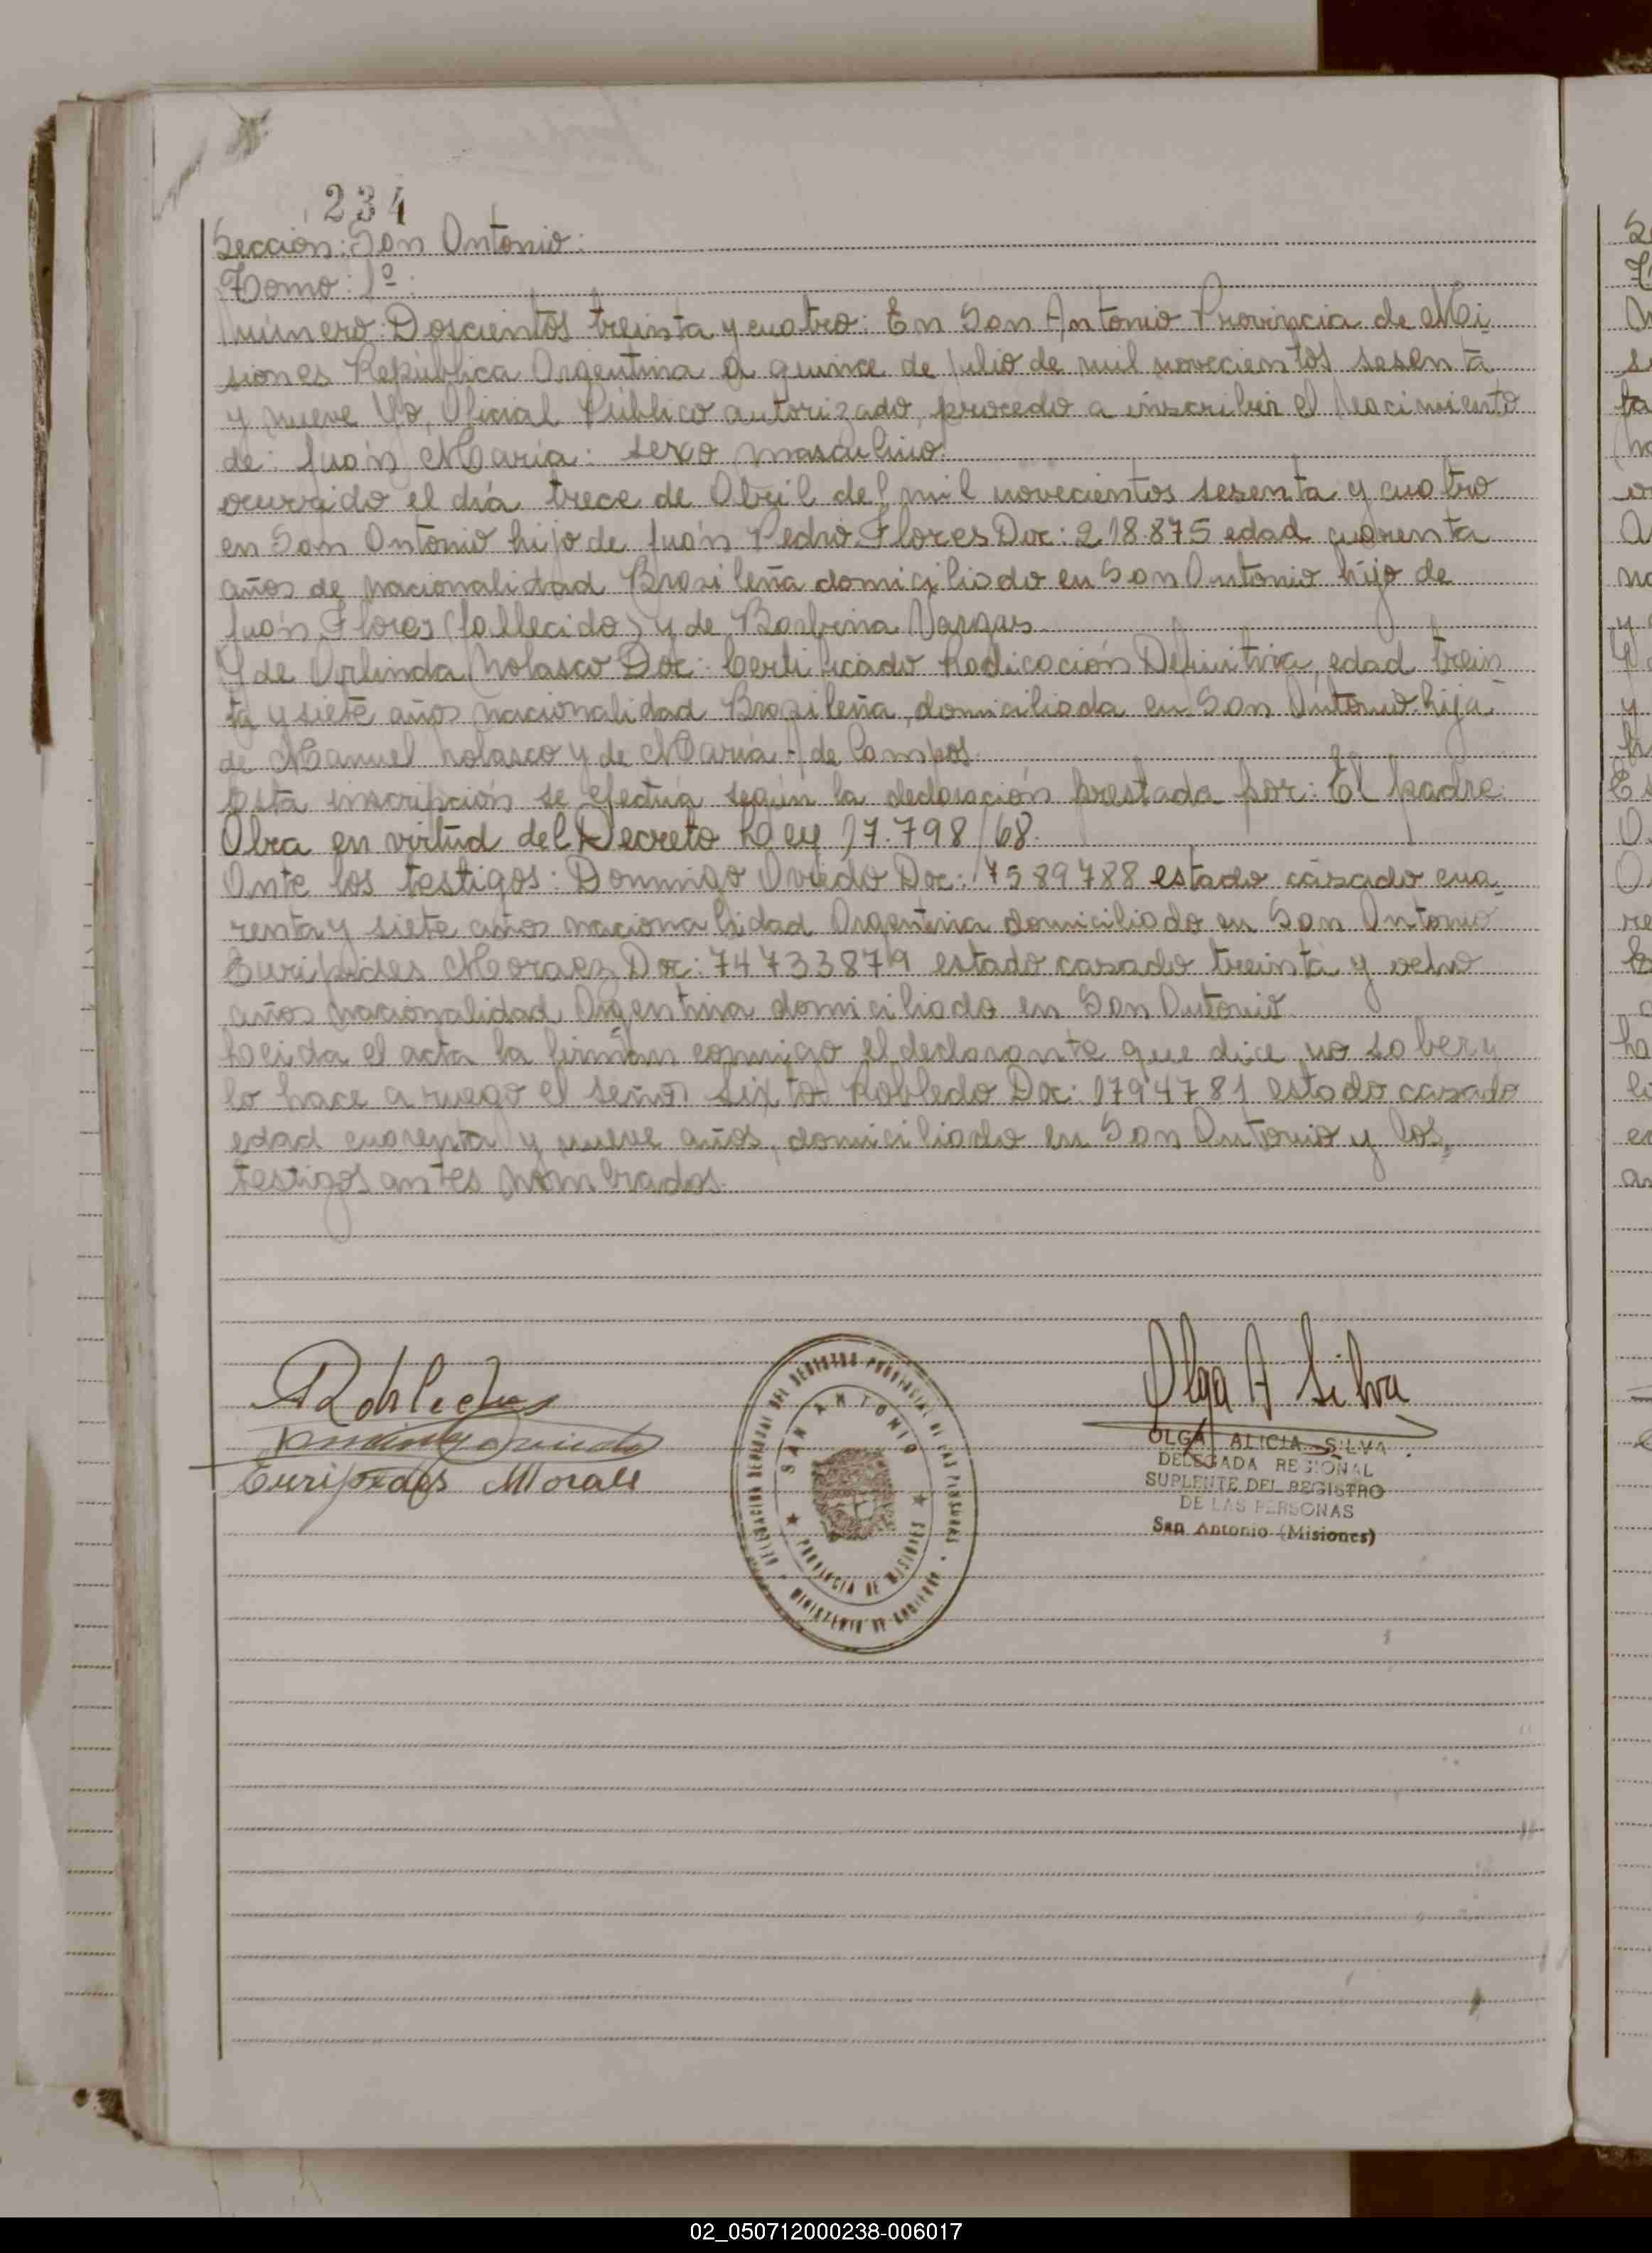 234
Sección: San Antonio:
Tomo: 1º:
Número: Doscientos treinta y cuatro: En San Antonio Provincia de Mi
siones República Argentina a quince de Julio de mil novecientos sesenta
y nueve Yo, Oficial Público autorizado, procedo a inscribir el Nacimiento
de: Juán María: sexo masculino:
ocurrido el día trece de Abril del mil novecientos sesenta y cuatro
en San Antonio hijo de Juán Pedro Flores Doc: 218.875 edad cuarenta
años de nacionalidad Brasileña domiciliado en San Antonio hijo de
Juán Flores (fallecido) y de Barbina Vargas
Y de Orlinda Nolasco Doc: Certificado Radicación Definitiva, edad trein
ta y siete años nacionalidad Brasileña, domiciliada en San Antonio hija
de Manuel Nolasco y de María A de Campos.
Esta inscripción se efectúa según la declaración prestada por: El padre:
Obra en virtud del Decreto Ley 17.798/68.
Ante los testigos: Domingo Oviedo Doc: 7589788 estado cásado cua
renta y siete años nacionalidad Argentina domiciliado en San Antonio
Euripides Moraez Doc: 74733879 estado casado treinta y ocho
años nacionalidad Argentina domiciliado en San Antonio.
Leida el acta la firman conmigo el declarante que dice no saber y
lo hace a ruego el señor Sixto Robledo Doc: 1794781 estado casado
edad cuarenta y nueve años, domiciliado en San Antonio y los,
testigos antes nombrados.
Robledo
Olga A Silva
Domingo Oviedo
Euripedes Morais
OLGA ALICIA SILVA
DELEGADA REGIONAL
SUPLENTE DEL REGISTRO
DE LAS PERSONAS
San Antonio (Misiones)
SAN ANTONIO
PROVINCIA DE MISIONES
DEL REGISTRO PROVINCIAL DE LAS PERSONAS
MINISTERIO DE GOBIERNO
02_050712000238-006017